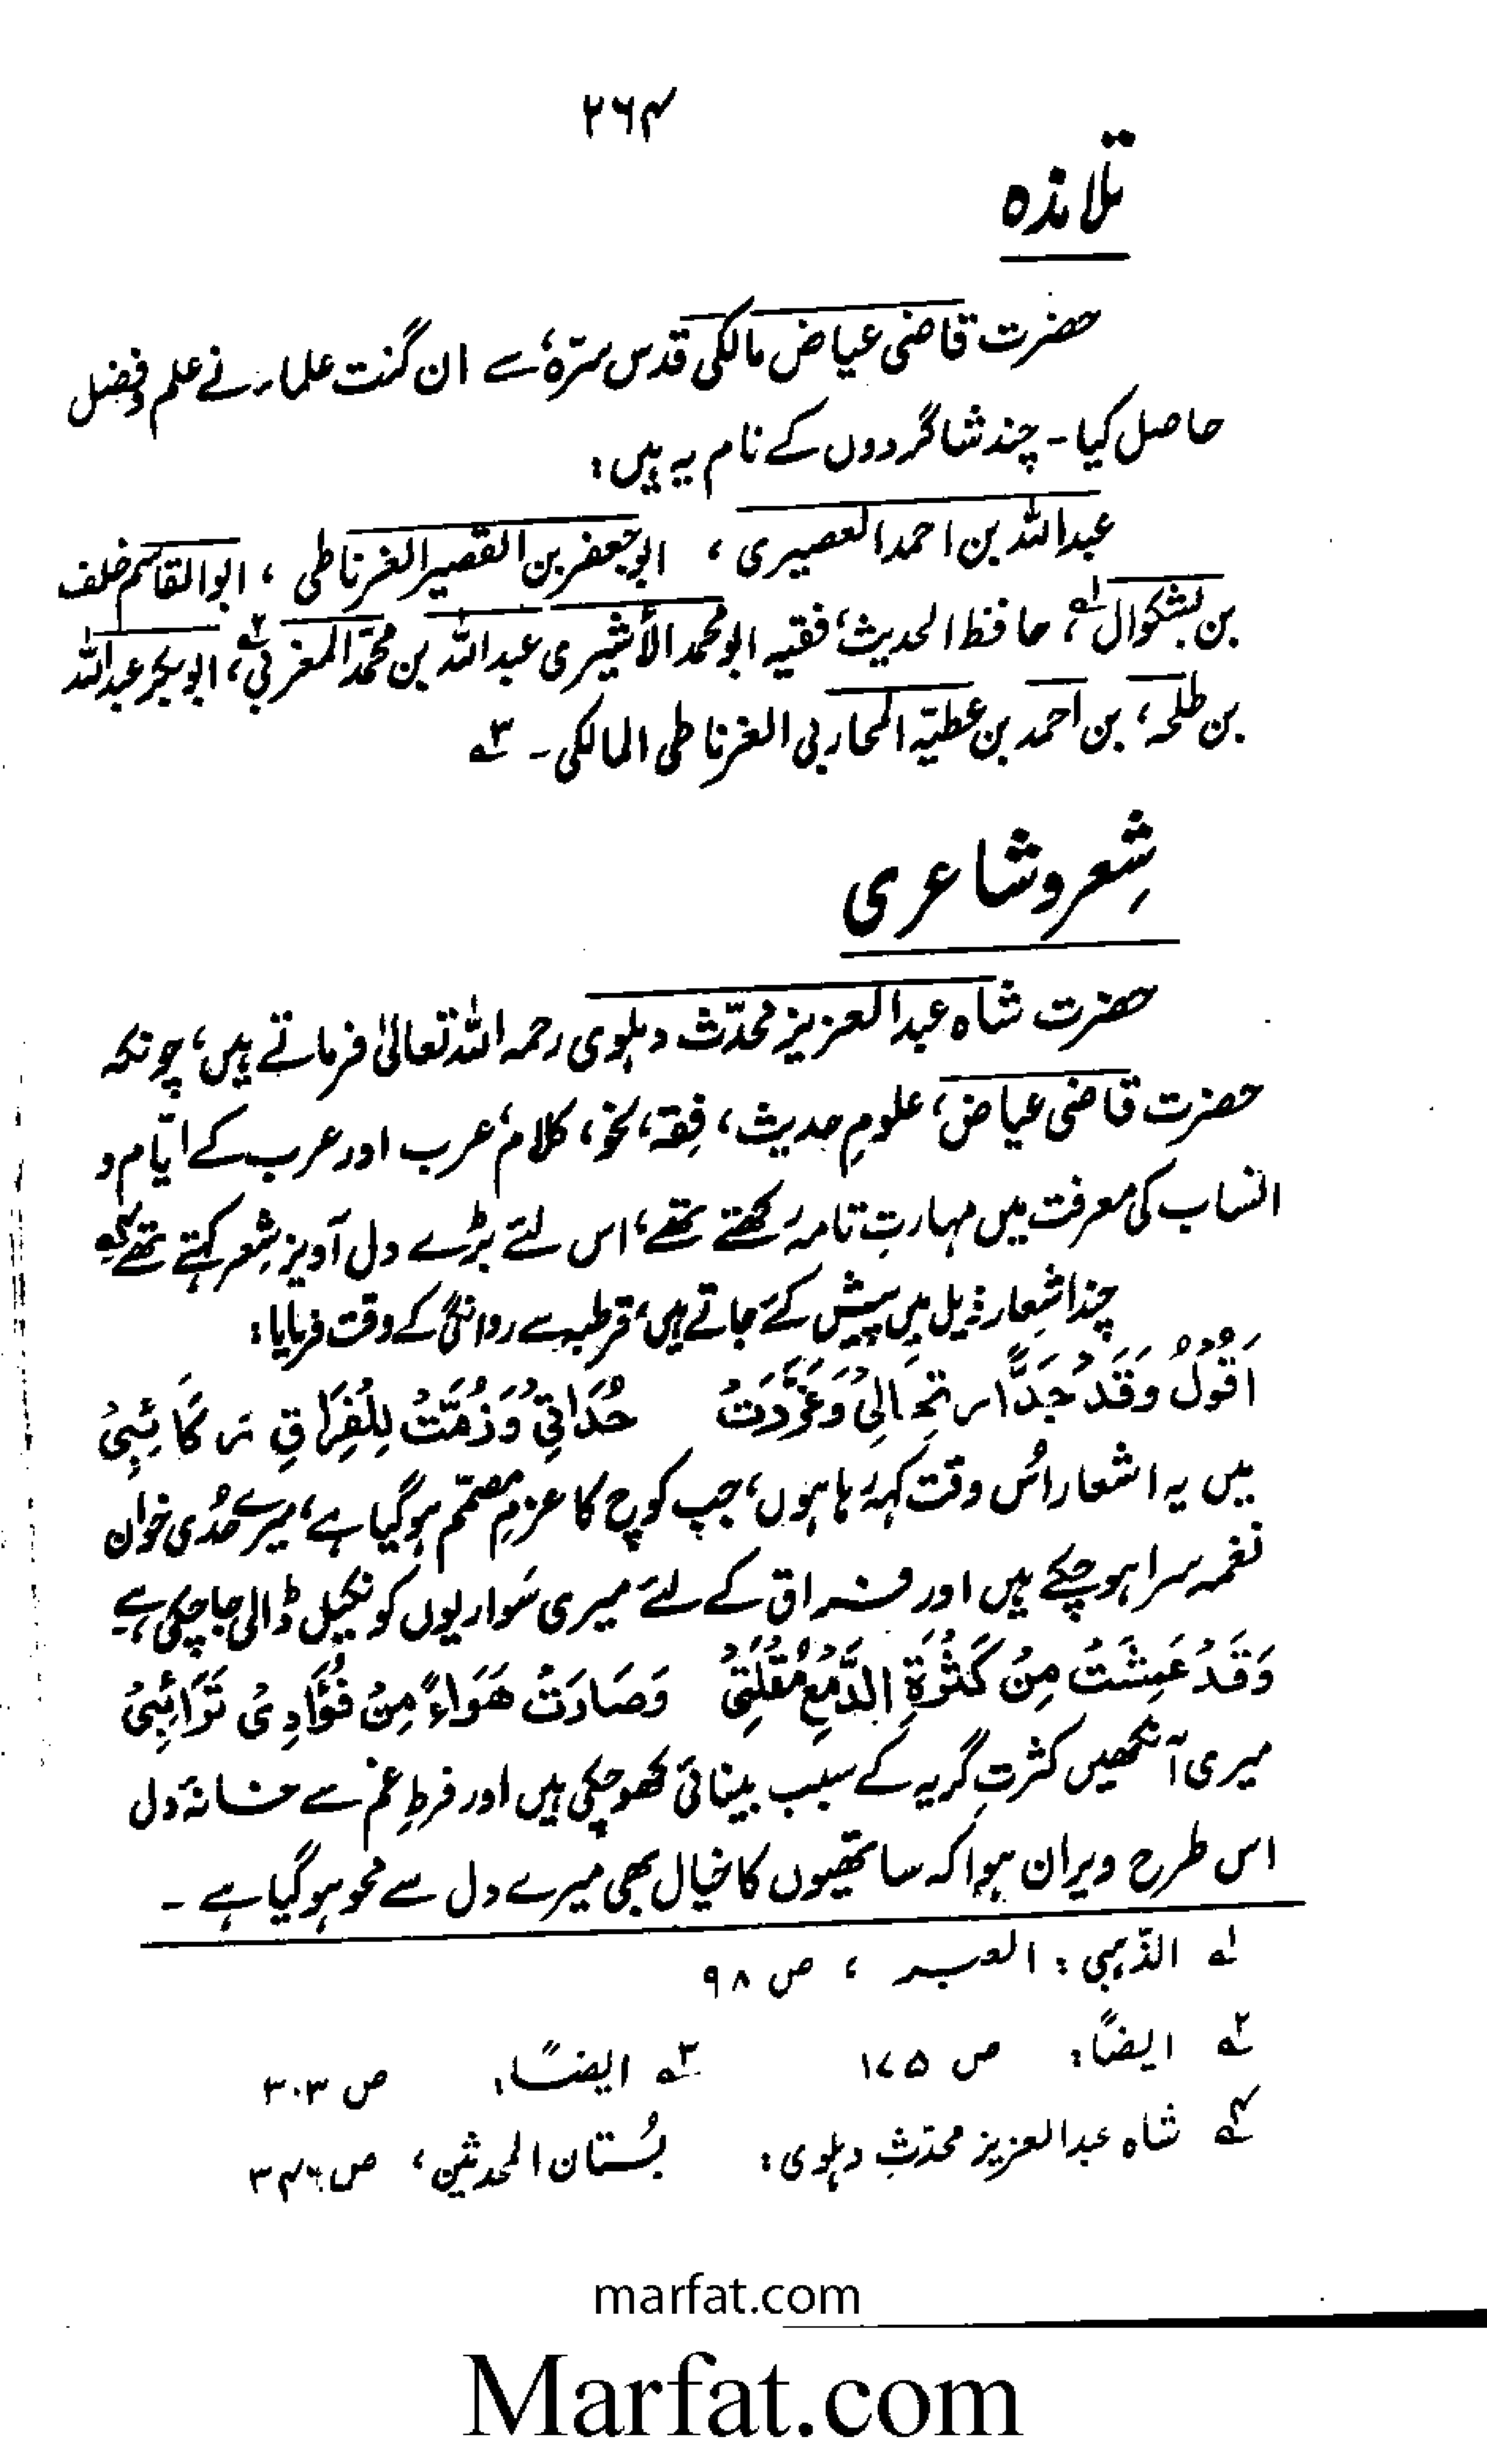 ۲۶۴
تلامذہ
حضرت قاضی عیاض مالکی قدس سرّہٗ سے ان گنت علماء نے علم و فضل
حاصل کیا ۔ چند شاگردوں کے نام یہ ہیں :
عبداللہ بن احمد العصیری ، ابو جعفر بن القصیر الغرناطی ، ابو القاسم خلف
بن بشکوال ؂۱، حافظ الحدیث، فقیہ ابو محمد الأشیری عبداللہ بن محمّد المغربی ؂۲، ابو بکر عبداللہ
بن طلحہ، بن احمد بن عطیّہ المحاربی الغرناطی المالکی ۔ ؂۳
شِعر و شاعری
حضرت شاہ عبدالعزیز محدّث دہلوی رحمہ اللہ تعالیٰ فرماتے ہیں، چونکہ
حضرت قاضی عیاض، علومِ حدیث، فِقہ، نحو، کلام عرب اور عرب کے ایّام و
انساب کی معرفت میں مہارتِ تامہ رکھتے تھے، اس لئے بڑے دل آویز شِعر کہتے تھے ؂۴
چند اشعار ذیل میں پیش کئے جاتے ہیں، قرطبہ سے روانگی کے وقت فرمایا :
اَقُوْلُ وَقَدْ جَدَّ ارْتِحَالِیْ وَغَرَّدَتْ حُدَاتِیْ وَزُمَّتْ لِلْفِرَاقِ رَکَائِبِیْ
میں یہ اشعار اُس وقت کہہ رہا ہوں، جب کوچ کا عزمِ مصمّم ہو گیا ہے، میرے حُدی خوان
نغمہ سرا ہو چکے ہیں اور فراق کے لئے میری سَواریوں کو نکیل ڈالی جا چکی ہے
وَقَدْ عَمِشَتْ مِنْ کَثْرَۃِ الدَّمْعِ مُقْلَتِیْ وَصَارَتْ ھَوَاءً مِنْ فُؤَادِیْ تَرَائِبِیْ
میری آنکھیں کثرتِ گریہ کے سبب بینائی کھو چکی ہیں اور فرطِ غم سے خانۂ دل
اس طرح ویران ہوا کہ ساتھیوں کا خیال بھی میرے دل سے محو ہو گیا ہے ۔
؂۱ الذّہبی : العبر ، ص ۹۸
؂۲ ایضاً : ص ۱۷۵ ؂۳ ایضاً : ص ۳۰۳
؂۴ شاہ عبدالعزیز محدّث دہلوی : بُستان المحدثین ، ص ۳۴۶
marfat.com
Marfat.com